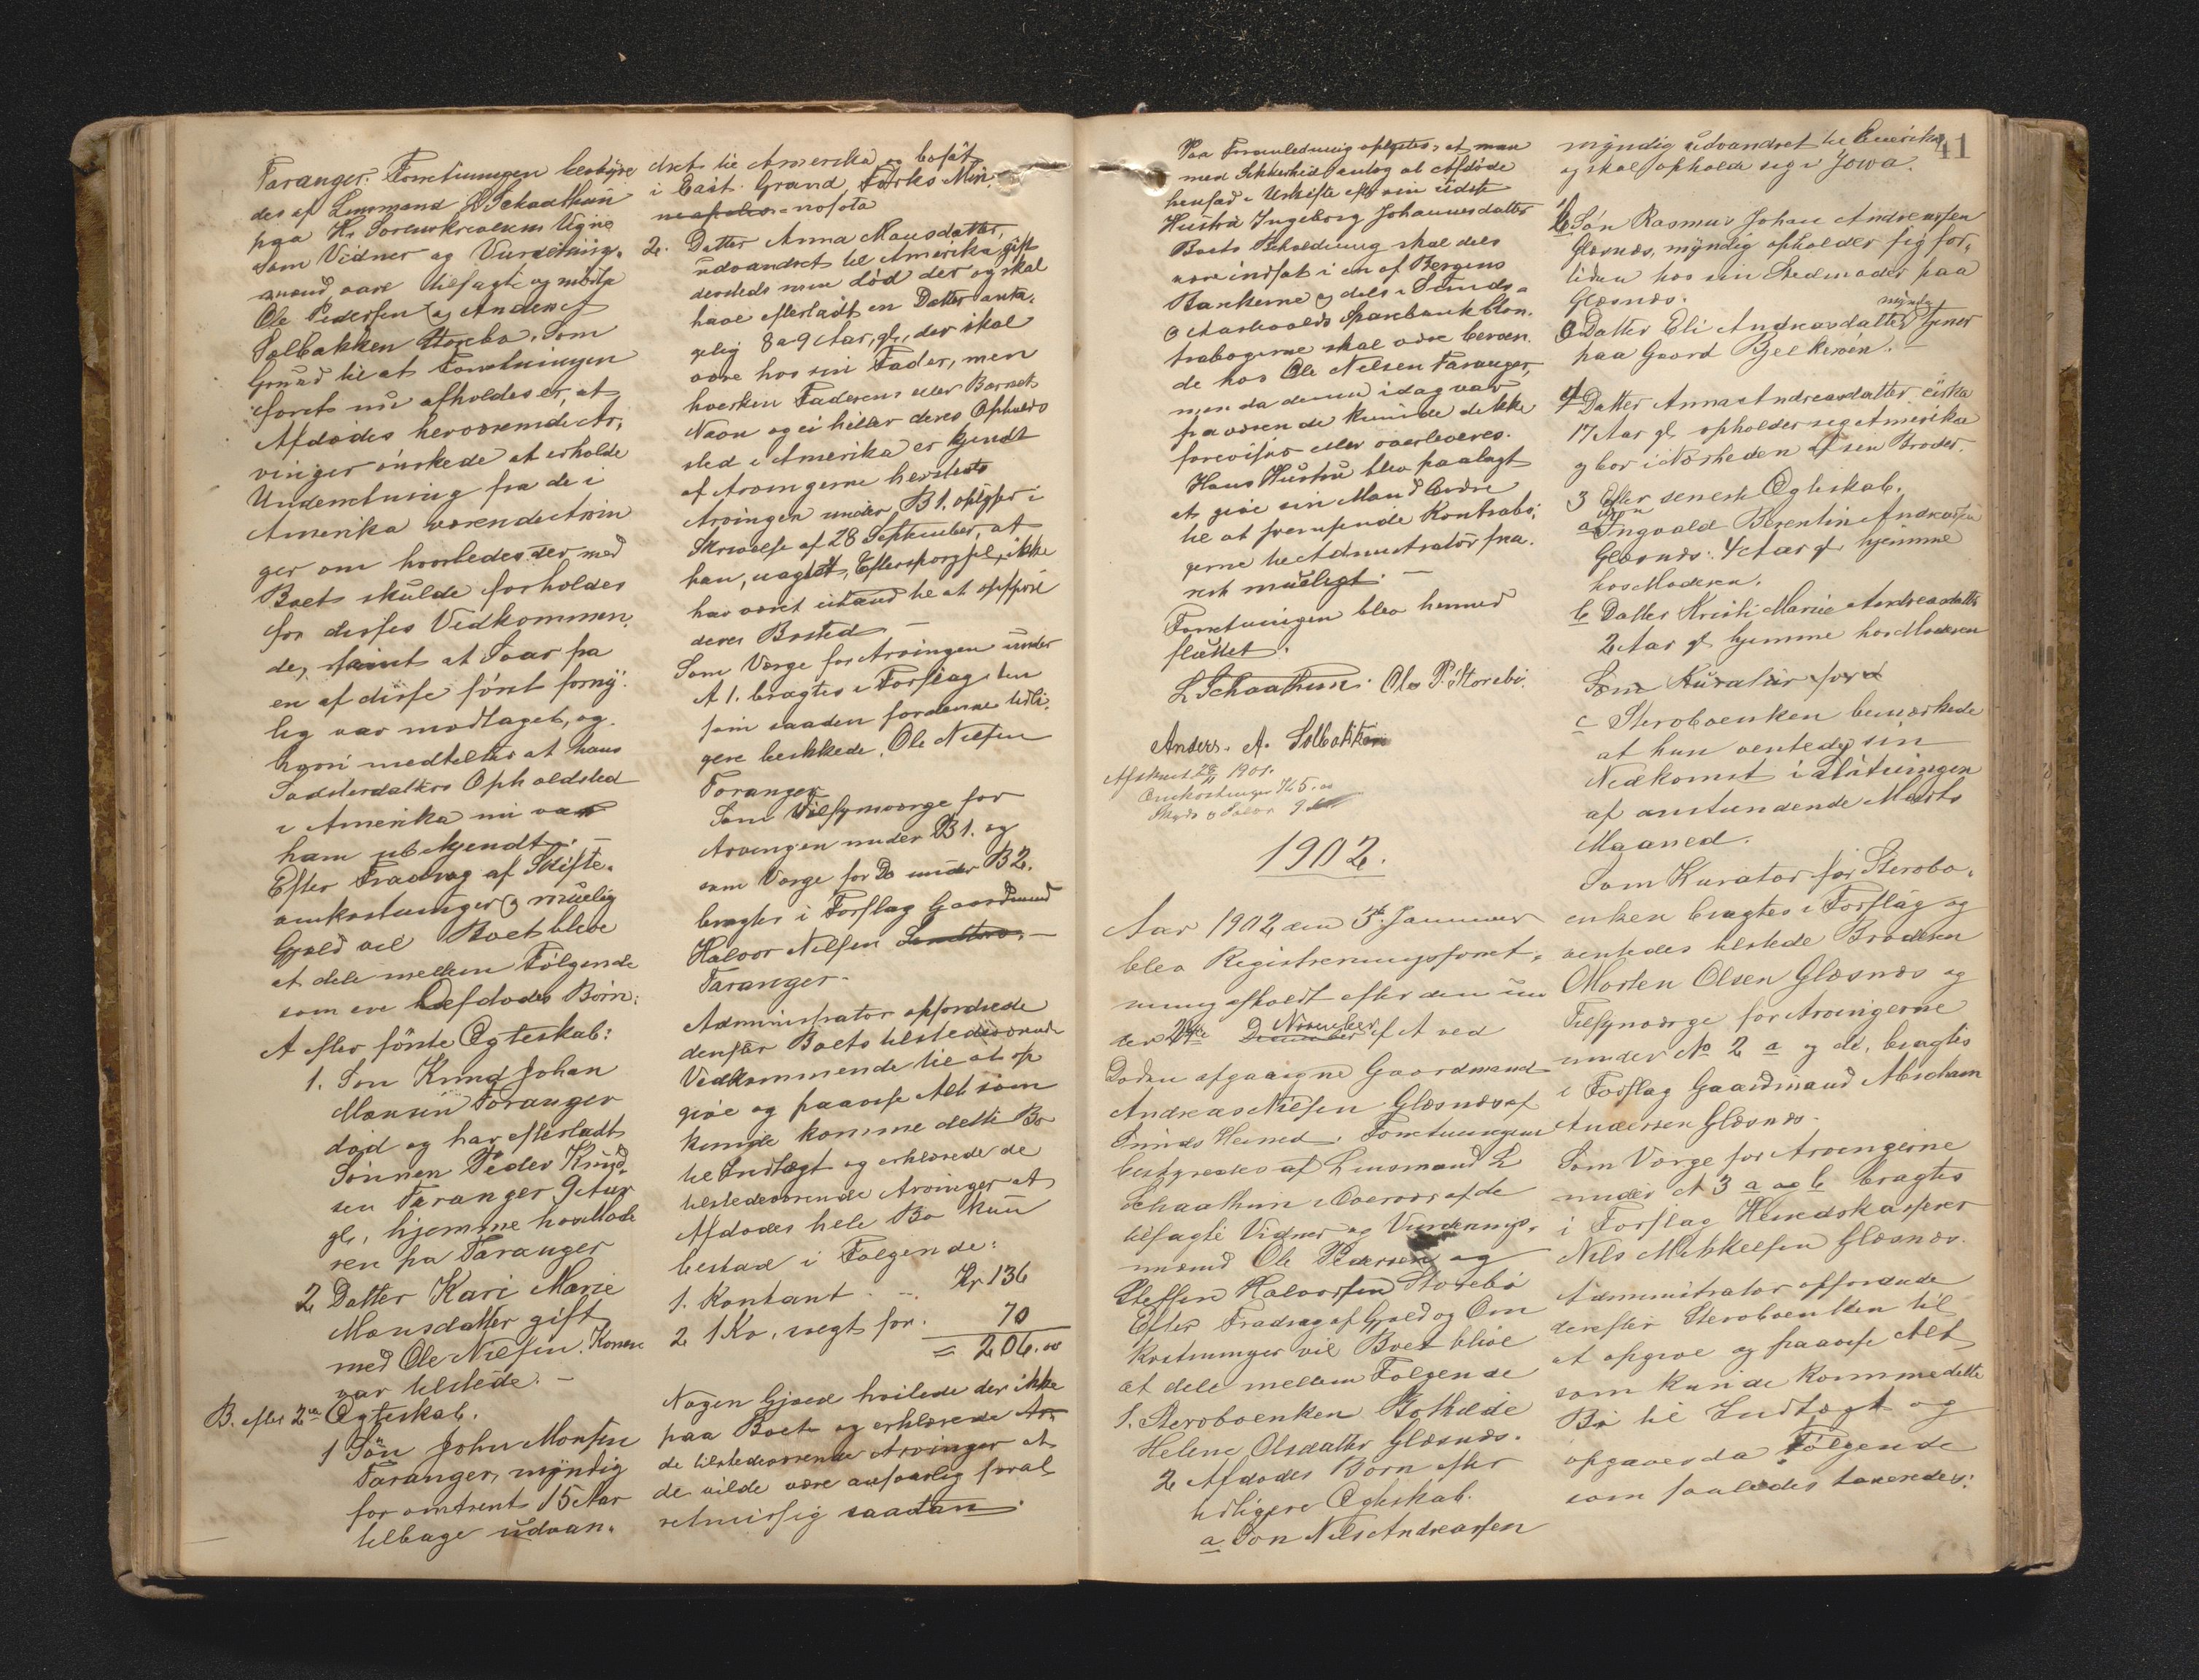 Taranger. Forretningen bestyre
des af Lensmand L Schaathun
paa Hr Sorenskriverens Vegne
Som Vidner og Vurderings-
mænd vare tilsagte og mødte
Ole Pedersen og Anders A
Solbakken Storebø. Som
Grund til at Forretningen
først nu afholdes er, at
Afdødes herværende Ar-
vinger ønskede at erholde
Underretning fra de i
Amerika værende Arvin
ger om hvorledes der med
Boet skulde forholdes
for disses Vidkommen,
de, samt at Svar fra
en af disse først forny-
lig var modtaget, og
hvori meddeltes at hans
Søsterdatters Opholdsted
i Amerika nu var
ham ubekjendt. –
Efter Fradrag af Skifte-
omkostninger og muelig
Gjeld vil Boet blive
at dele mellem Følgende
som ere Afdødes Børn:
A efter første Ægteskab:
1. Søn Knud Johan
Monsen Taranger
død og har efterladt
Sønnen Peder Knud-
sen Taranger 9 Aar
gl, hjemme hos Mode
ren paa Taranger
2 Datter Kari Marie
Monsdatter gift
med Ole Nilsen. Konen
var tilstede. –
B. efter 2det Ægteskab.
1 Søn John Monsen
Taranger, myndig
for omtrent 15 Aar
tilbage udvan-
dret til Amerika og bosat
i East. Grand Forks Min-
neapolis = nesota
2. Datter Anna Monsdatter,
udvandret til Amerika gift
dersteds men død der og skal
have efterladt en Datter anta-
gelig 8 a 9 Aar, gl, der skal
være hos sin Fader, men
hverken Faderens eller Barnets
Navn og ei heller deres Opholds
sted i Amerika er kjendt
af Arvingerne hersteds
Arvingen under B1. oplyser i
Skrivelse af 28 September, at
han, uagtet, Efterspørgsel, ikke
har været istand til at opspore
deres Bosted –
Som Værge for Arvingen under
A 1. bragtes i Forslag den
som saadan for denne tidli-
gere beskikkede. Ole Nilsen
Taranger
Som Tilsynsværge for
Arvingen under B1. og
som Værge for Do under B2.
bragtes i Forslag Gaardmand
Halvor Nilsen
Taranger.
Administrator opfordrede
derefter Boets tilstedeværende
Vedkommende til at op
give og paavise Alt som
kunde komme dette Bo
til Indtægt og erklærede de
tilstedeværende Arvinger at
Afdødes hele Bo kun
bestaar i Følgende:
1. Kontant .. Kr 136
2 1 Ko, vegt for. 70
= 206.00
Nogen Gjæld hvilede der ikke
paa Boet og erklærede Ar-
de tilstedeværende Arvinger at
de vilde være ansvarlig forat
retmæssig saadan
Paa Foranledning oplystes, at man
med Sikkerhed antog at Afdøde
hensad i Uskifte efter sin sidste
Hustru Ingeborg Johannesdatter
Boets Beholdning skal dels
være indsat i en af Bergens
Bankerne og dels i Sunds-
o Austevolds Sparebank Kon-
trabøgerne skal være beroen-
de hos Ole Nilsen Taranger,
men da denne idag var
fraværende kunde de ikke
forevises eller overleveres.
Hans Hustru blev paalagt
at give sin Mand Ordre
til at fremsende Kontrabø-
gerne til Administrator sna-
rest mueligt. –
Forretningen blev hermed
sluttet.
L Schaathun. Ole P. Storebø.
Anders. A. Solbakken
Afskrevet 28/11 1901.
Omkostninger K 5.00
1902.
Aar 1902 den 3die Januar
blev Registreringsforret-
ning afholdt efter den un
der 24de December November f A ved
Døden afgaaigne Gaardmand
Andreas Nilsen Glæsnæs af
Sunds Herred. Forretningen
bestyredes af Lensmand L
Schaathun i Overvær af de
tilsagte Vidner og Vurderings-
mænd Ole Pedersen og
Steffen Halvorsen Storebø
Efter Fradrag af Gjeld og Om
kostninger vil Boet blive
at dele mellem Følgende
1. Sterboenken Bothilde
Helene Olsdatter Glæsnæs.
2 Afdødes Børn efter
tidligere Ægteskab.
a Søn Nils Andreassen
41
myndig udvandret til Amerika
og skal opholde sig i Jowa.
b Søn Rasmus Johan Andreassen
Glæsnæs, myndig opholder sig for-
tiden hos sin Stedmoder paa
Glæsnæs.
c Datter Eli Andreasdatter myndig tjener
paa Gaard Bjelkerøen. –
d Datter Anna Andreasdatter cirka
17 Aar gl opholder seg i Amerika
og bor i Nærheden af sin Broder.
3 Efter seneste Ægteskab.
a Søn Ingvald Berentin Andreassen
Glæsnæs. 4 Aar gl hjemme
hos Moderen.
b Datter Kristi Marie Andreasdatter
2 Aar gl hjemme hos Moderen
Som Kurator for d
c Sterboenken bemærkede
at hun ventede sin
Nedkomst i Slutningen
af anstundende Marts
Maaned.
Som Kurator for Sterbo-
enken bragtes i Forslag og
ventedes tilstede Broderen
Morten Olsen Glæsnæs og
Tilsynværge for Arvingerne
under No 2 a og d, bragtes
i Forslag Gaardmand Abraham
Andersen Glæsnæs.
Som Værge for Arvingerne
under No 3 a og b bragtes
i Forslag Herredskasserer
Nils Mikkelsen Glæsnæs.
Administrator opfordrede
derefter Sterboenken til
at opgive og paavise Alt
som kunde komme dette
Bo til Indtægt og
opgaves da Følgende
som saaledes taxeredes: